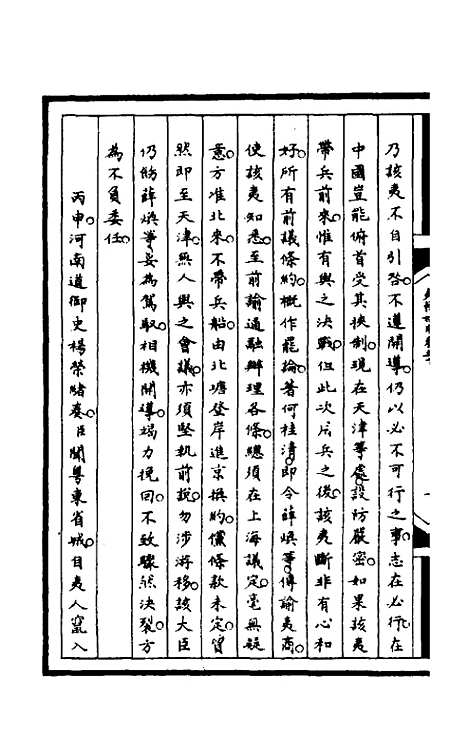 乃該夷不自引咎。不遵開導。仍以必不可行之事。志在必行。在
中國豈能俯首受其挾制。現在天津等處。設防嚴密。如果該夷
帶兵前來。惟有與之決戰。但此次兵之後。該夷斷非有心和
好。所有前議條約。概作罷論。著何桂清。即令薛煥等。傳諭夷商。
使該夷知悉。至前諭通融辦理各條。總須在上海議定。毫無疑
意。方准北來。不帶兵船。由北塘登岸進京換約。儻條款未定。冒
然即至天津。無人與之會議。亦須堅執前說。勿涉游移。該大臣
仍飭薛煥等。妥為駕馭。相機開導。竭力挽回。不致驟然決裂。方
為不負委任。
丙申。河南道御史楊榮緒奏。臣聞粵東省城。自夷人竄入